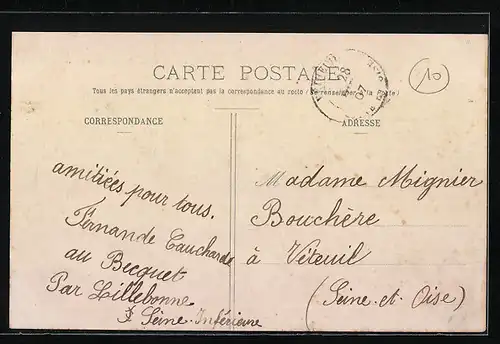 CARTE POSTALE
Tous les pays étrangers n'acceptent pas la correspondance au recto (Se renseigner à la Poste)
CORRESPONDANCE
ADRESSE
10
28
07
amitiées pour tous.
Fernande Cauchard
au Becquet
Par Lillebonne
Seine-Inférieure
Madame Mignier
Bouchère
à Véteuil
(Seine-et Oise)